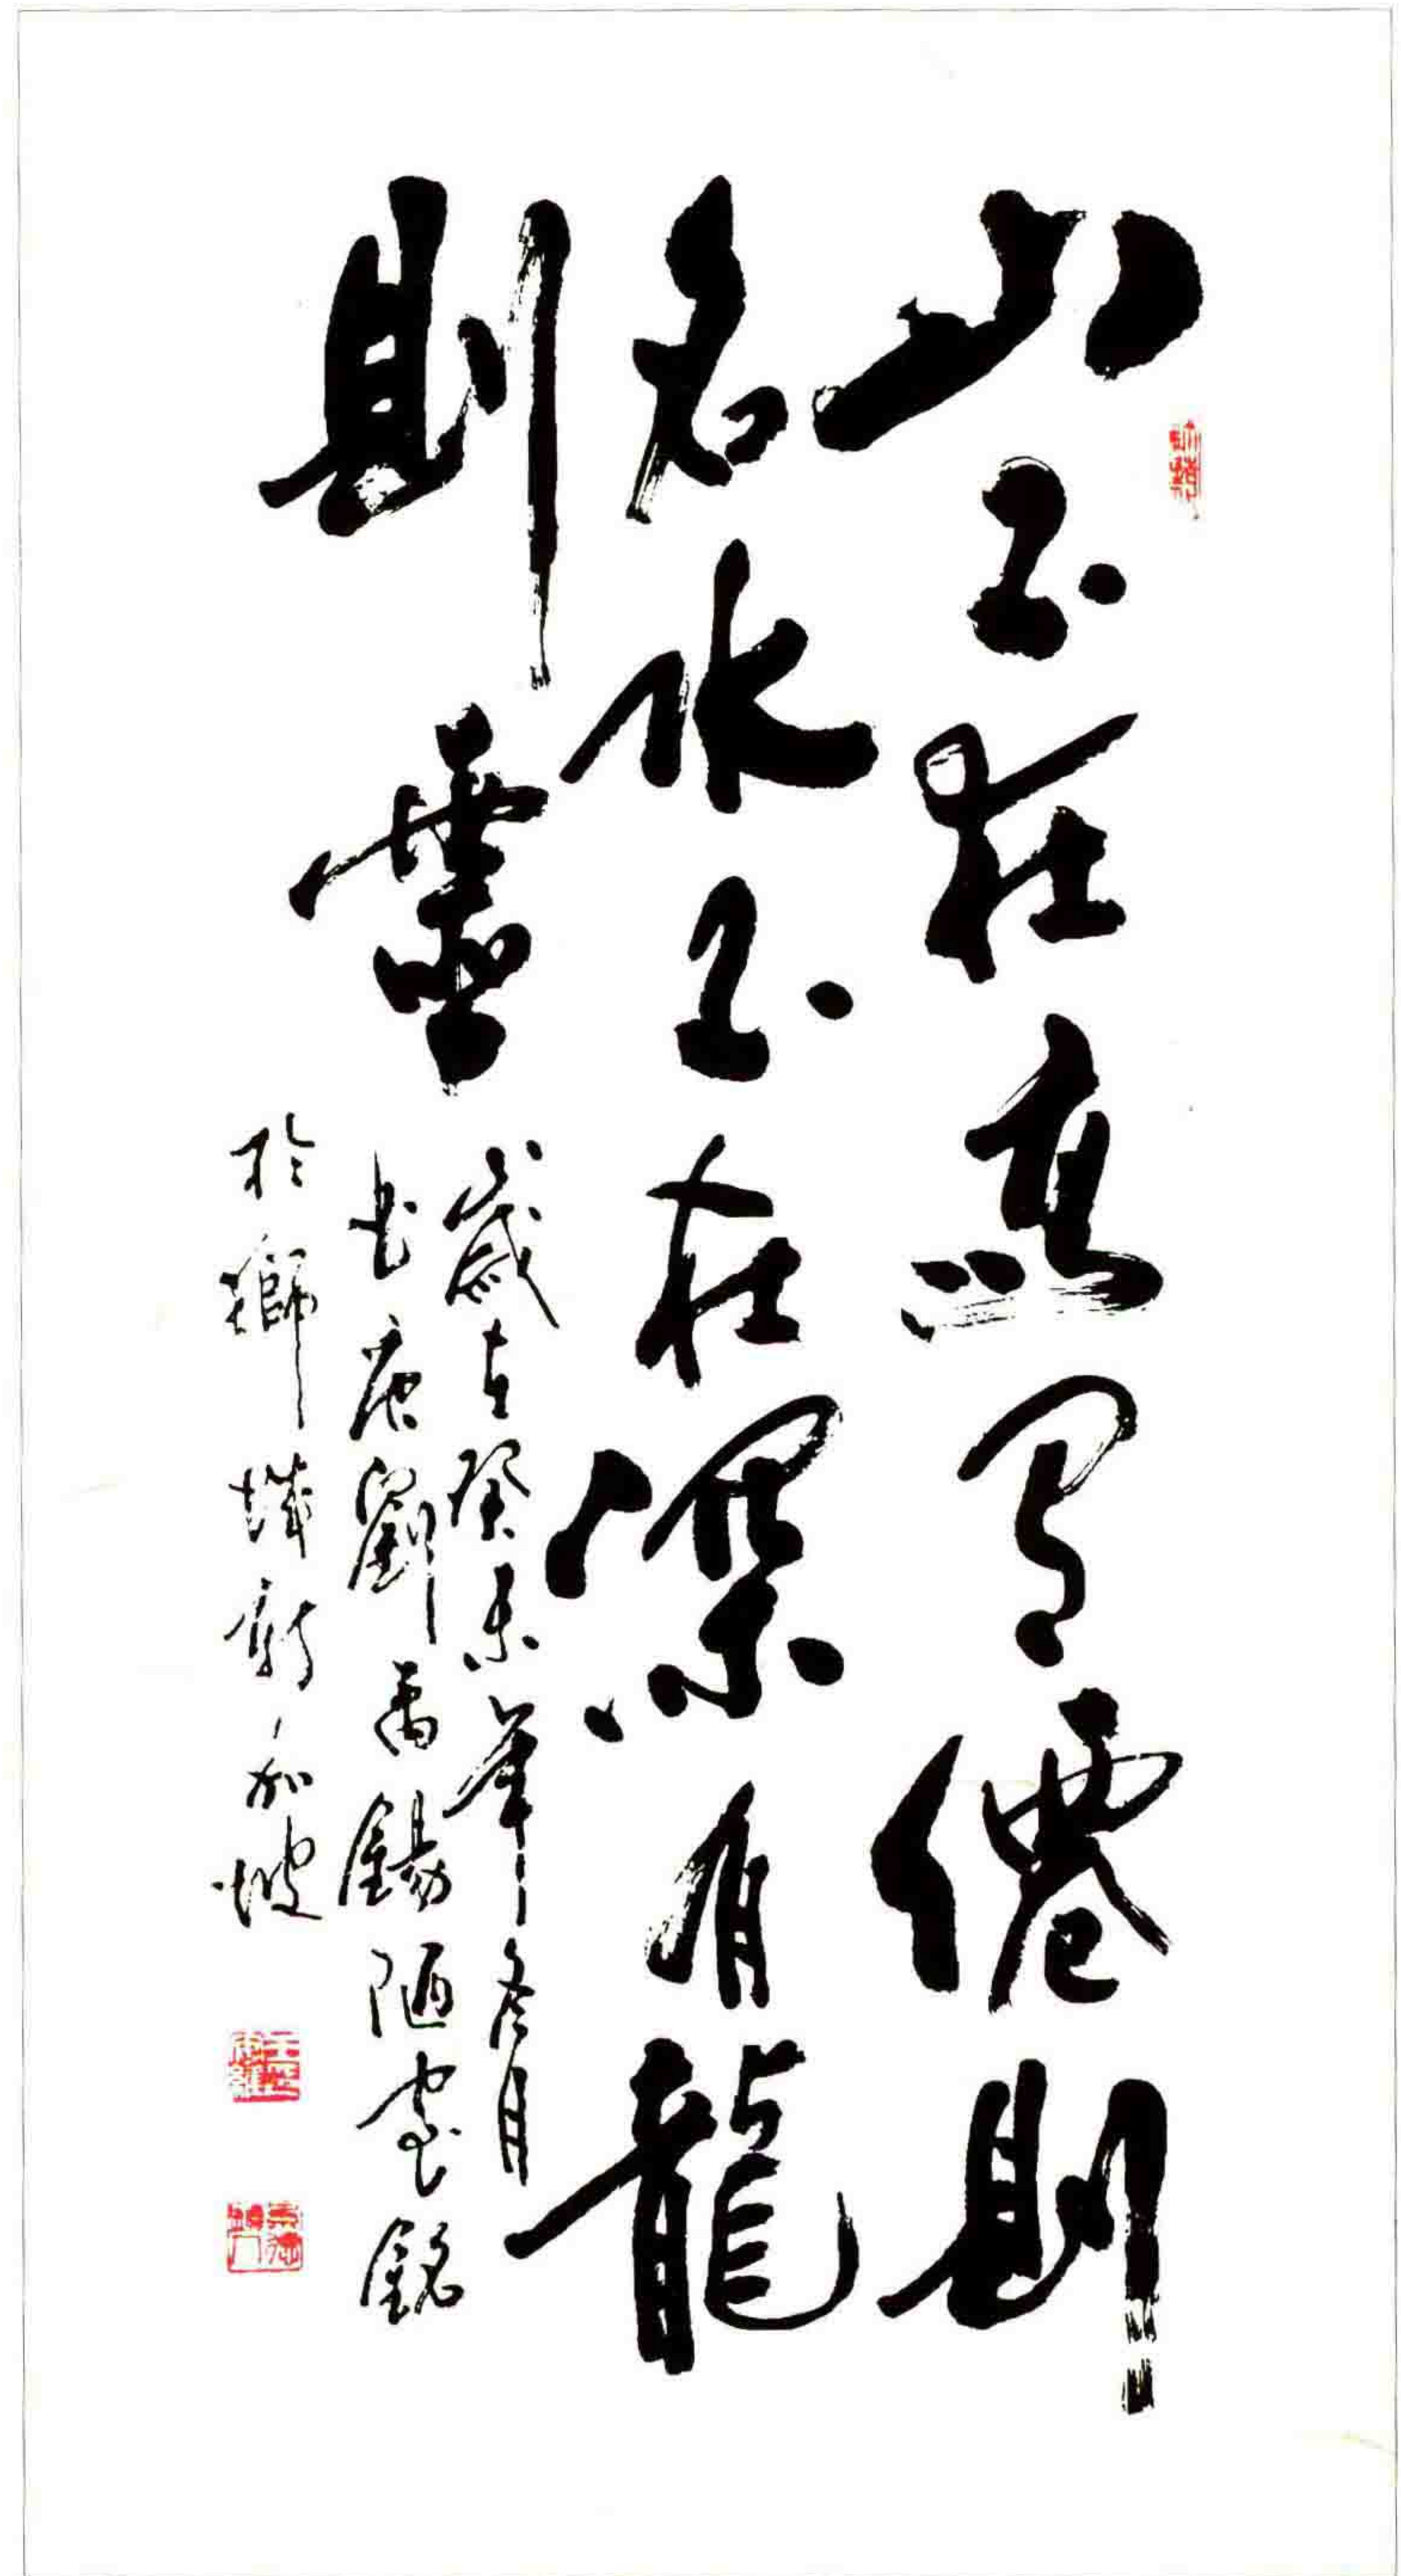 山不在高有僊則
名水不在深有龍
則靈
歲在癸未年冬月
書唐劉禹錫陋室銘
於獅城新加坡